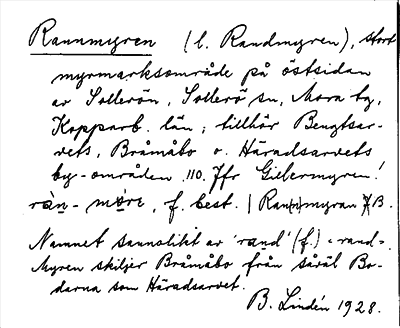 Rannmyren (l. Randmyren), stort
myrmarksområde på östsidan
av Sollerön, Sollerö sn, Mora tg,
Kopparb. län; tillhör Bengtsar-
vets, Bråmåbo o. Häradsarvets
by-områden. 110. Jfr Gilbermyren!
f. best. | Ra(n)myran JB.
Namnet sannolikt av 'rand' (f.) = rand.
Myren skiljer Bråmåbo från såväl Bo-
darna som Häradsarvet.
B. Lindén 1928.